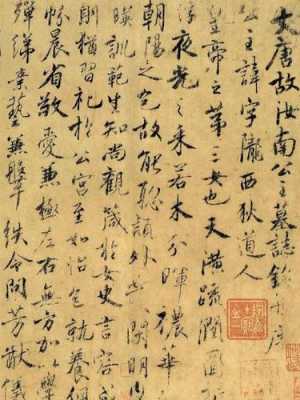 大唐故汝南公主墓誌銘并序
公主諱字隴西狄道人
皇帝之第三女也天潢疏潤圓
浮夜光之采若木分暉穠華
朝陽之色故能聰穎外發閑明內
暎訓範生知尚觀箴於女史言容成
則猶習礼於公宮至如怡色就養佩
帉晨省敬愛兼極左右無方加以學
殫綈素藝兼鞶紩令問芳猷儀